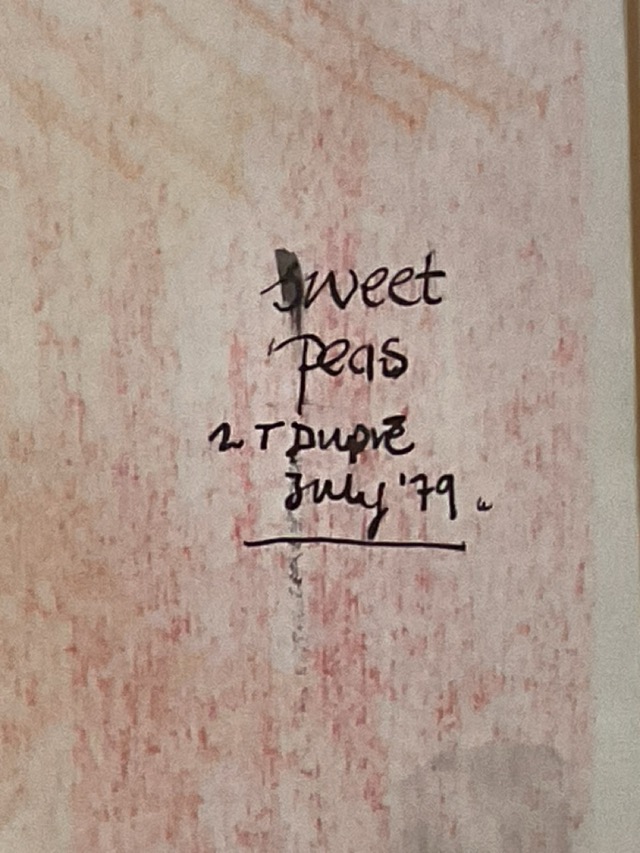 Sweet
Peas
T Dupré
July '79.